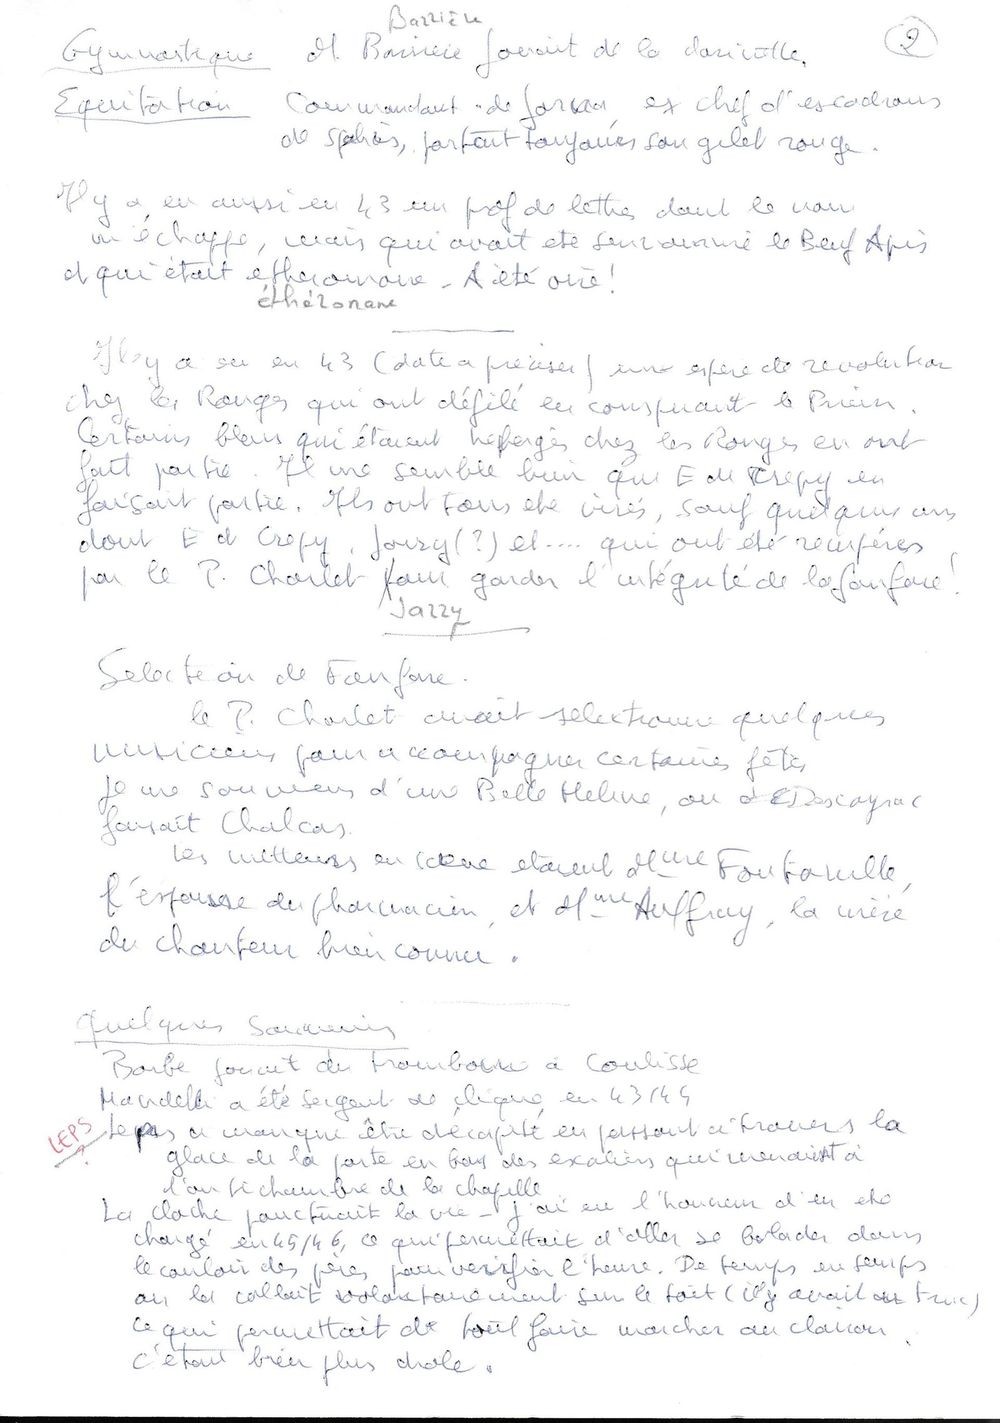 Barrière
Gymnastique M. Barrière jouait de la clarinette.
2
Equitation Commandant de ex chef d'escadrons
de spahis, portait toujours son gilet rouge.
Il y a eu aussi en 43 un prof de lettres dont le nom
m'échappe, mais qui avait été surnommé le Bœuf Apis
et qui était etheromane - A été viré !
éthéromane
Il y a eu en 43 (date a préciser) une espèce de revolution
chez les Rouges qui ont défilé en conspuant le
Certains bleus qui étaient hébergés chez les Rouges en ont
fait partie. Il me semble bien que E de Crepy en
faisait partie. Ils ont tous été virés, sauf quelques uns
dont E d Crepy, Jouzy (?) et .... qui ont été récupérés
par le P. Charlet pour garder l'intégrité de la fanfare !
Jazzy
Selection de Fanfare.
le P. Charlet avait selectionné quelques
musiciens pour accompagner certaines fêtes
Je me souviens d'une Belle Helene, ou d Descayrac
faisait Chalcas.
Les metteurs en scene etaient Mme Fontanille,
l'épouse du pharmacien, et Mme Auffray, la mère
du chanteur bien connu.
Quelques Souvenirs
Barbe jouait du trombone à Coulisse
Mandelli a été sergent de clique en 43/44
LEPS
?
Leps a manqué être décapité en passant à travers la
glace de la porte en bas des escaliers qui menait à
l'antichambre de la chapelle
La cloche ponctuait la vie - J'ai eu l'honneur d'en etre
chargé en 45/46, ce qui permettait d'aller se balader dans
le couloir des pères pour verifier l'heure. De temps en temps
on la collait volontairement sur le toit (il y avait un truc)
ce qui permettait de tout faire marcher au clairon,
c'était bien plus drole.